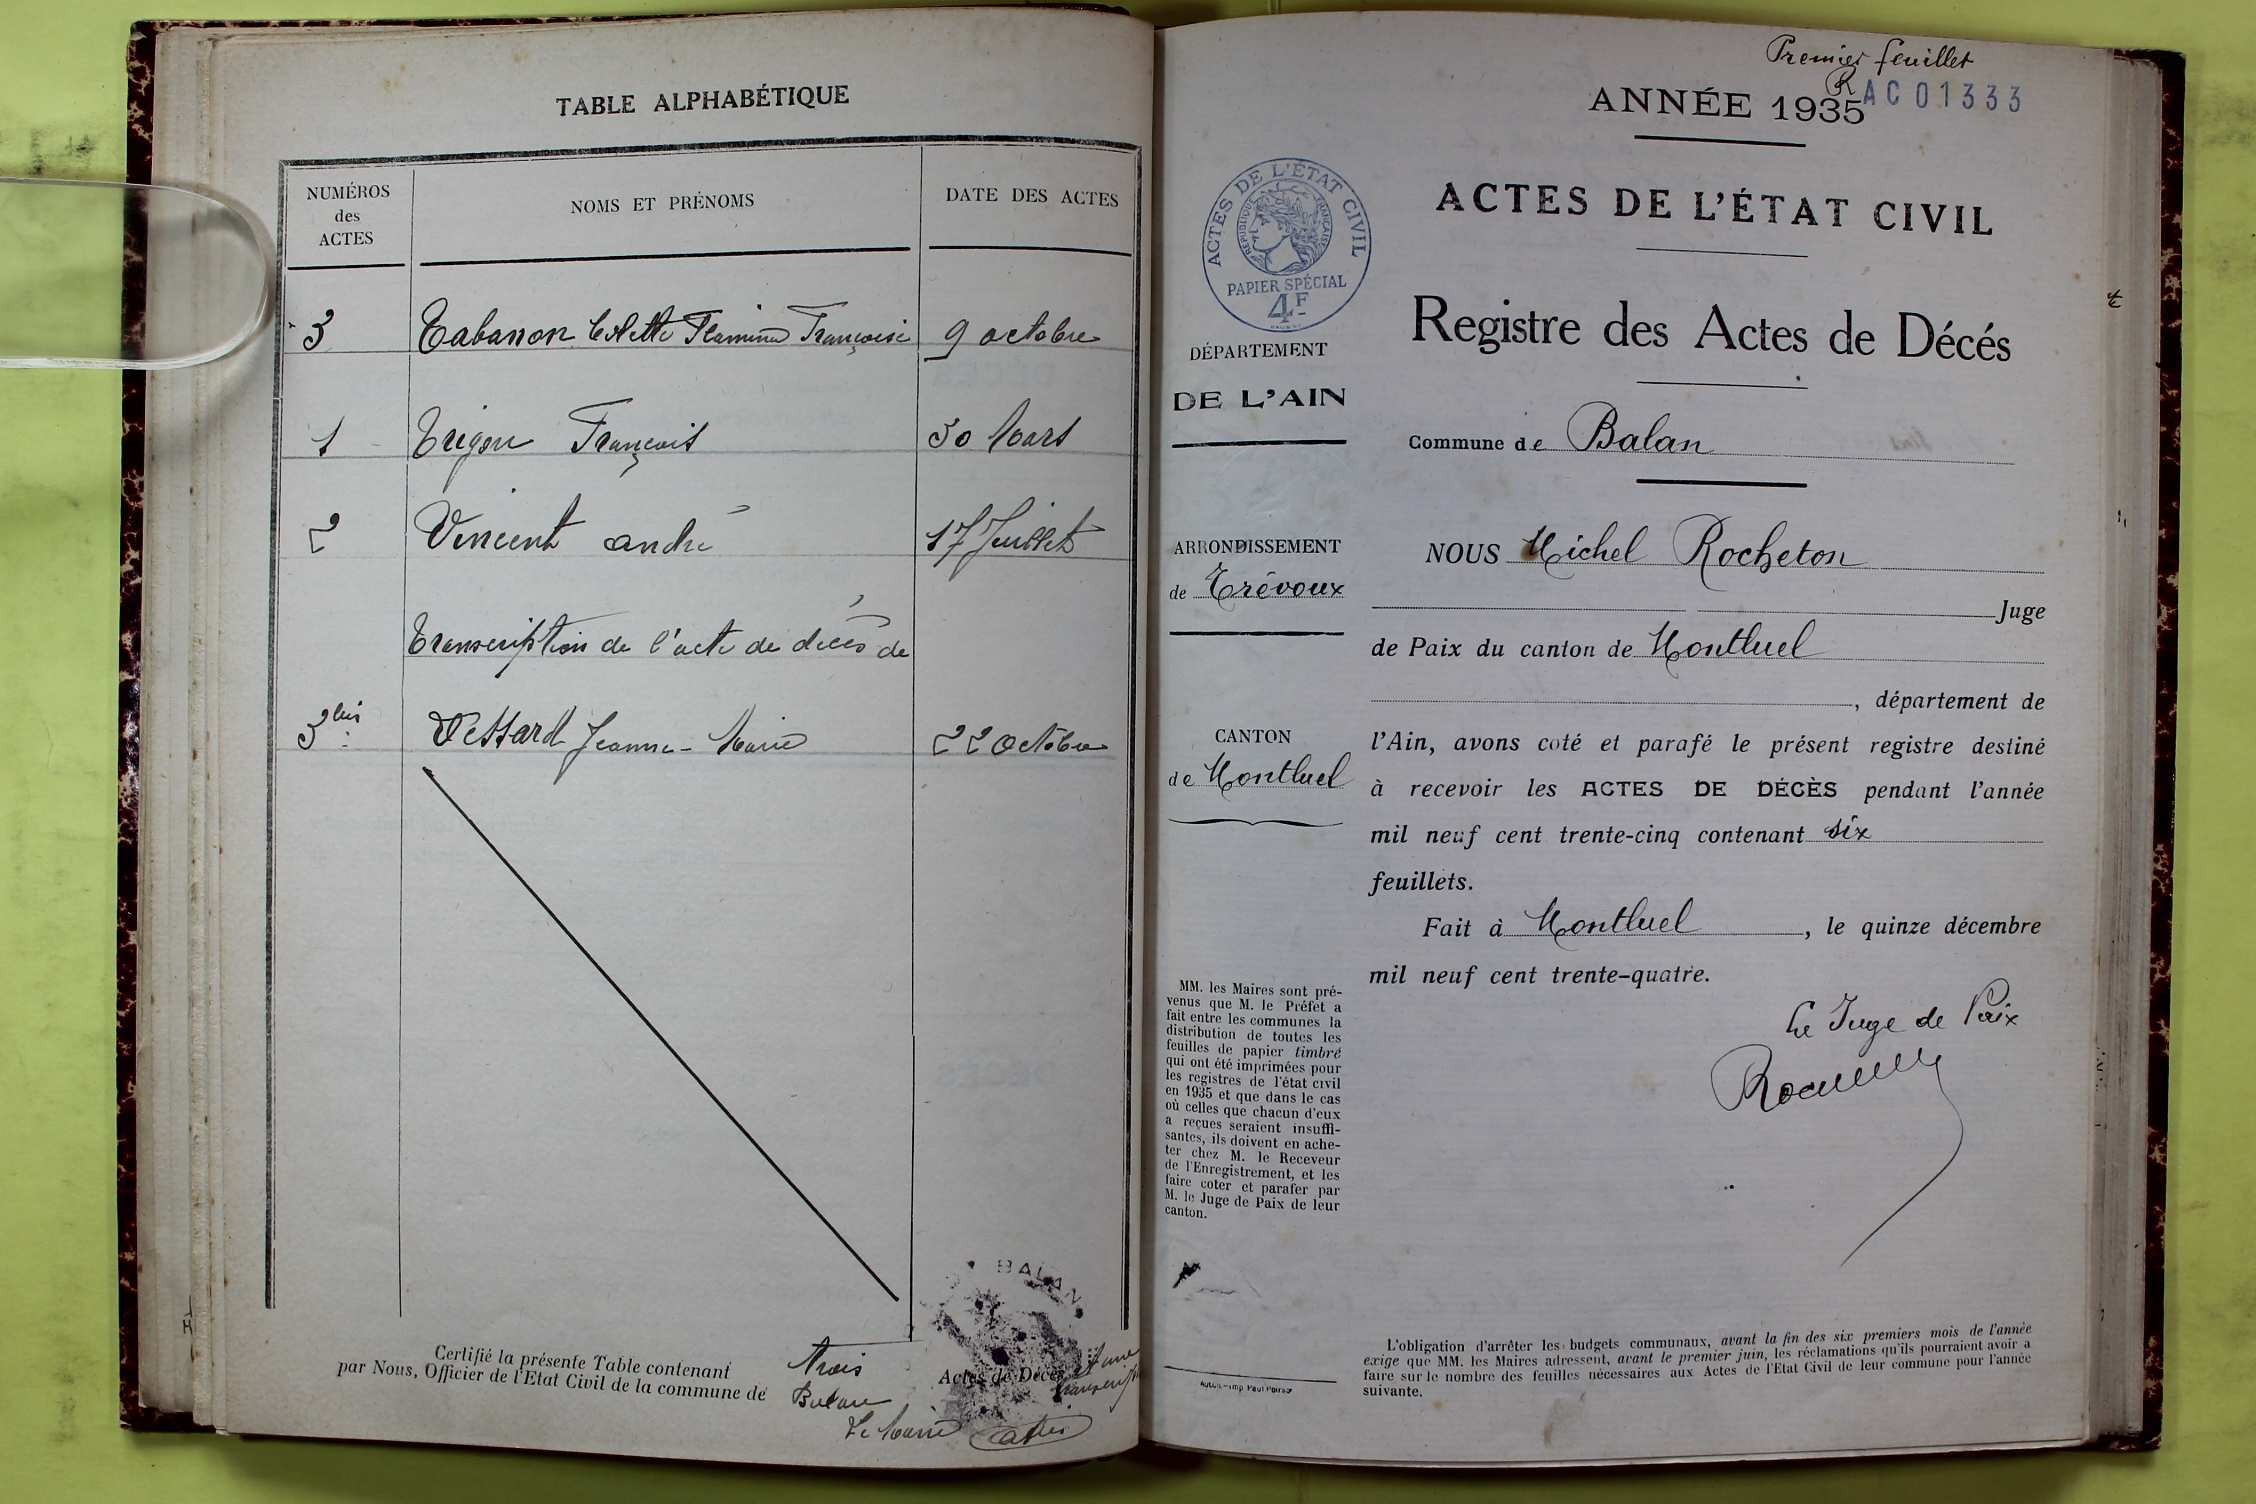 TABLE ALPHABÉTIQUE
NUMÉROS
des
ACTES
NOMS ET PRÉNOMS
DATE DES ACTES
3 Tabanon Colette Flamina Françoise 9 octobre
1 Trigon François 30 Mars
2 Vincent andré 17 Juillet
Transcription de l'acte de décès de
3 bis Vessard Jeanne-Marie 22 Octobre
BALAN
Certifié la présente Table contenant trois Actes de Décès et une transcription
par Nous, Officier de l'Etat Civil de la commune de Balan
Le Maire
Premier feuillet
R
ANNÉE 1935
AC 01333
ACTES DE L'ÉTAT CIVIL
RÉPUBLIQUE FRANÇAISE
PAPIER SPÉCIAL
4F
DÉPARTEMENT
DE L'AIN
ARRONDISSEMENT
de Trévoux
CANTON
de Montluel
MM. les Maires sont pré-
venus que M. le Préfet a
fait entre les communes la
distribution de toutes les
feuilles de papier timbré
qui ont été imprimées pour
les registres de l'état civil
en 1935 et que dans le cas
où celles que chacun d'eux
a reçues seraient insuffi-
santes, ils doivent en ache-
ter chez M. le Receveur
de l'Enregistrement, et les
faire coter et parafer par
M. le Juge de Paix de leur
canton.
ACTES DE L'ÉTAT CIVIL
Registre des Actes de Décés
Commune de Balan
NOUS Michel Rocheton
Juge
de Paix du canton de Montluel
, département de
l'Ain, avons coté et parafé le présent registre destiné
à recevoir les ACTES DE DÉCÈS pendant l'année
mil neuf cent trente-cinq contenant six
feuillets.
Fait à Montluel, le quinze décembre
mil neuf cent trente-quatre.
Le Juge de Paix
L'obligation d'arrêter les budgets communaux, avant la fin des six premiers mois de l'année
exige que MM. les Maires adressent, avant le premier juin, les réclamations qu'ils pourraient avoir a
faire sur le nombre des feuilles nécessaires aux Actes de l'Etat Civil de leur commune pour l'année
suivante.